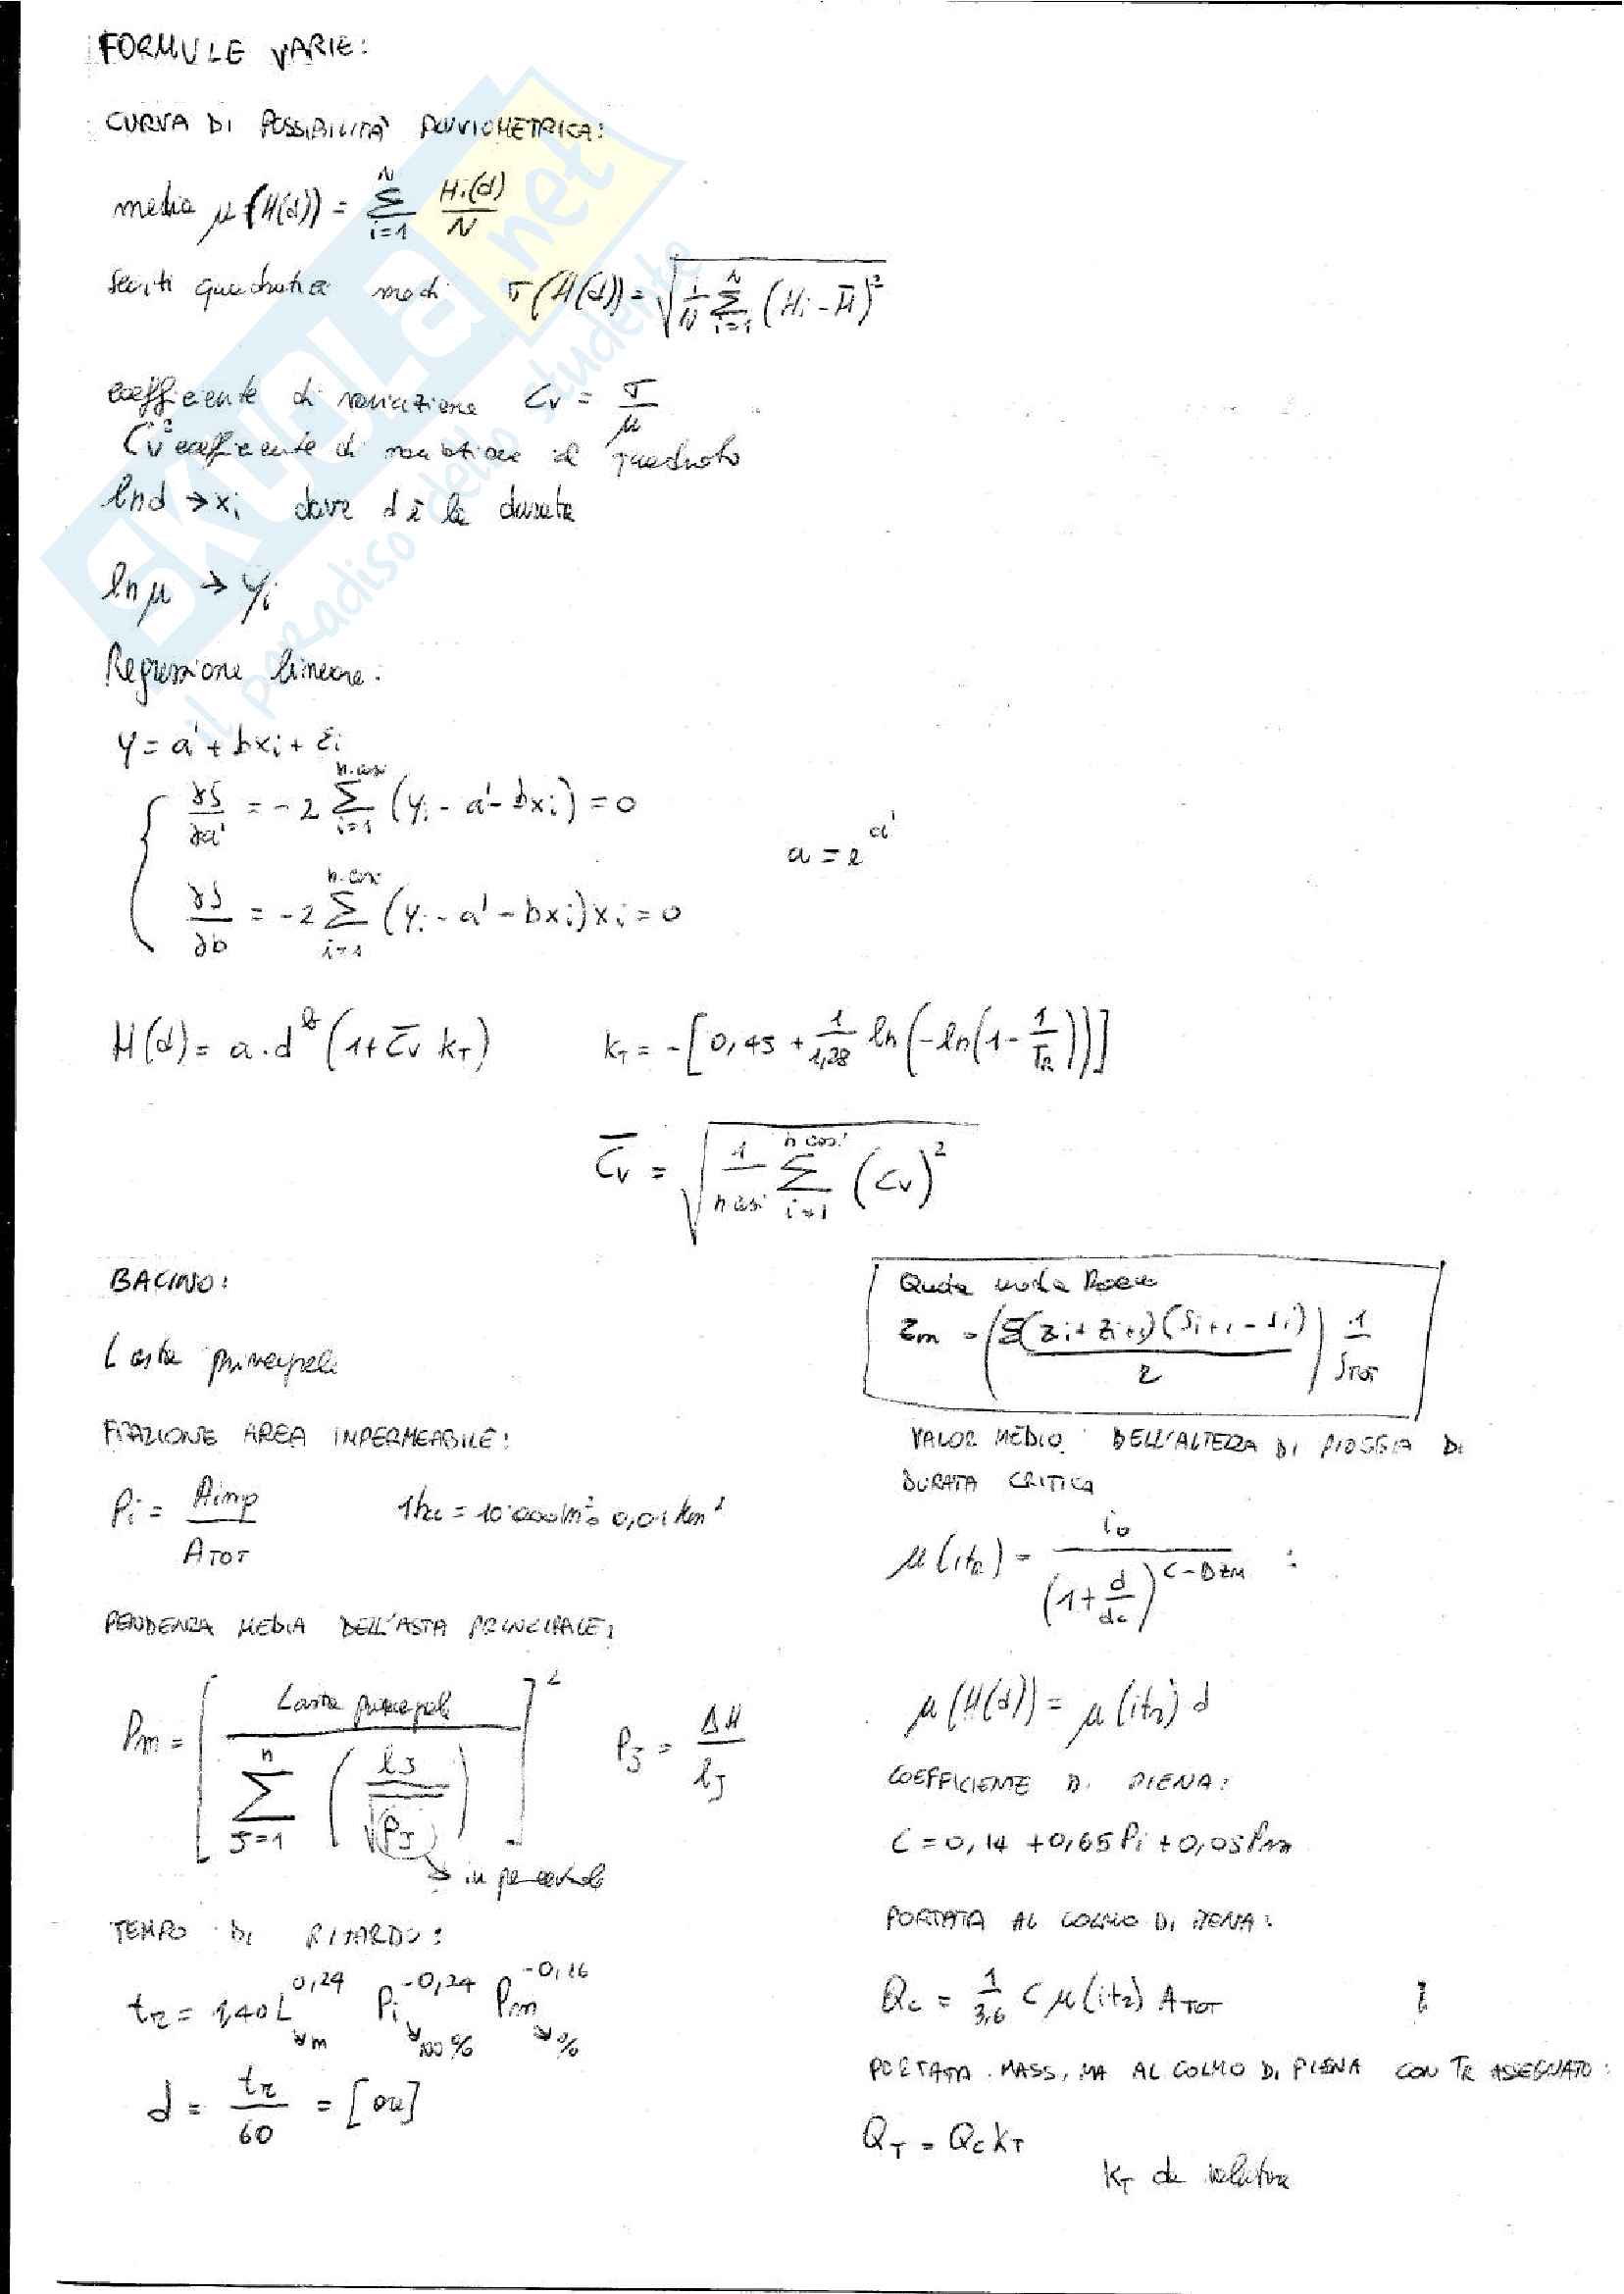 FORMULE VARIE:
CURVA DI POSSIBILITÀ PLUVIOMETRICA:
media μ(H(d)) = Σ_{i=1}^{N} Hi(d)/N
scarti quadratici medi σ(H(d)) = √(1/N Σ_{i=1}^{N} (Hi - H̄)²)
coefficiente di variazione Cv = σ/μ
Cv² coefficiente di variazione al quadrato
ln d → xi dove d è la durata
ln μ → yi
Regressione lineare:
y = a' + bxi + εi
∂S/∂a' = -2 Σ_{i=1}^{n.casi} (yi - a' - bxi) = 0
a = e^{a'}
∂S/∂b = -2 Σ_{i=1}^{n.casi} (yi - a' - bxi)xi = 0
H(d) = a·d^b (1 + C̄v kT) kT = -[0,45 + 1/1,28 ln(-ln(1 - 1/TR))]
C̄v = √(1/n casi Σ_{i=1}^{n casi} (Cv)²)
BACINO:
L asta principale
FRAZIONE AREA IMPERMEABILE:
Pi = Aimp/ATOT 1ha = 10'000m² = 0,01 km²
PENDENZA MEDIA DELL'ASTA PRINCIPALE:
Pm = [L asta principale / Σ_{J=1}^{n} (lJ/√(PJ))]² PJ = ΔH/lJ
in percentuale
TEMPO DI RITARDO:
tR = 1,40 L^{0,24} Pi^{-0,24} Pm^{-0,16}
m 100% %
d = tR/60 = [ore]
Quota media
zm = (Σ(zi + zi+1)(Si+1 - Si)/2) 1/STOT
VALOR MEDIO DELL'ALTEZZA DI PIOGGIA DI
DURATA CRITICA
μ(itR) = i0/(1 + d/dc)^{C-DZM} :
μ(H(d)) = μ(itR) d
COEFFICIENTE DI PIENA:
C = 0,14 + 0,65Pi + 0,05Pm
PORTATA AL COLMO DI PIENA:
Qc = 1/3,6 C μ(itR) ATOT
PORTATA MASSIMA AL COLMO DI PIENA CON TR ASSEGNATO:
QT = Qc KT
KT da
SKUOLA.net
il paradiso dello studente